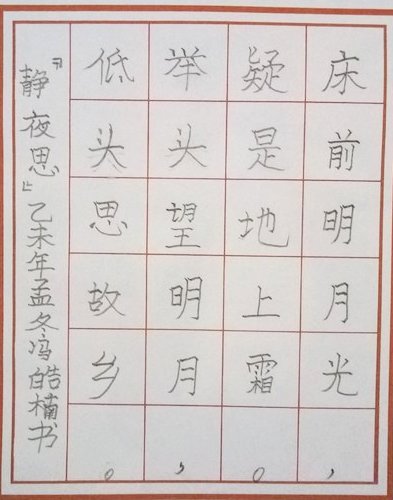 床前明月光，
疑是地上霜。
举头望明月，
低头思故乡。
『静夜思』乙未年孟冬冯皓楠书